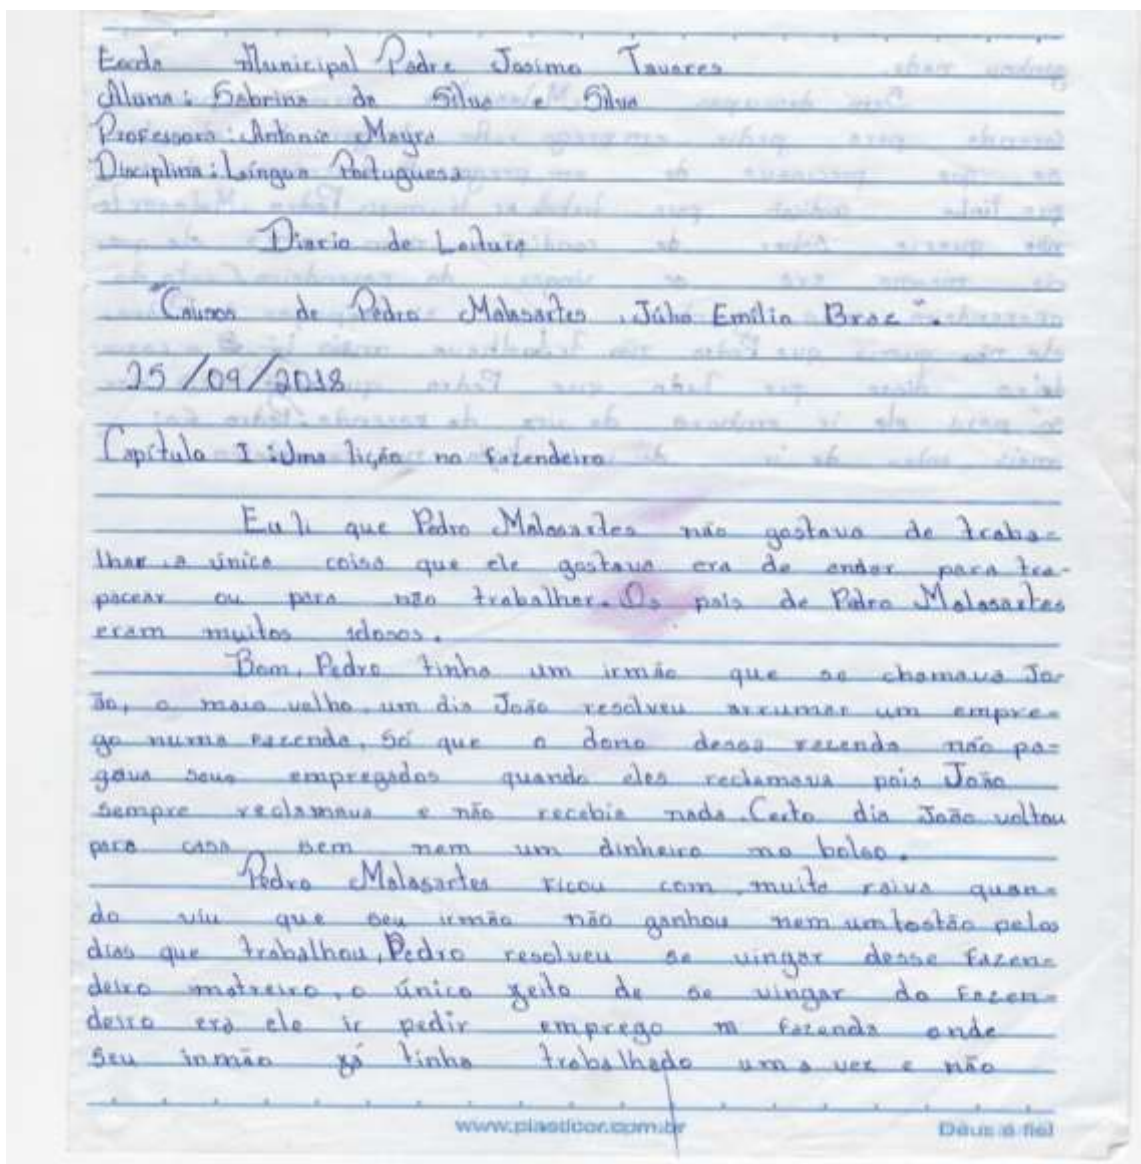 Escola Municipal Padre Josimo Tavares
Aluna: Sabrina da Silva e Silva
Professora: Antonia Mayra
Disciplina: Língua Portuguesa
Diario de Leitura
"Causos de Pedro Malasartes, Júlio Emílio Braz".
25/09/2018
Capítulo I: Uma lição no fazendeiro
Eu li que Pedro Malasartes não gostava de traba-
lhar, a única coisa que ele gostava era de andar para tra-
pacear ou para não trabalhar. Os pais de Pedro Malasartes
eram muitos idosos.
Bom, Pedro tinha um irmão que se chamava Jo-
ão, o mais velho, um dia João resolveu arrumar um empre-
go numa fazenda, só que o dono dessa fazenda não pa-
gava seus empregados quando eles reclamava pois João
sempre reclamava e não recebia nada. Certo dia João voltou
para casa sem nem um dinheiro no bolso.
Pedro Malasartes ficou com muita raiva quan-
do viu que seu irmão não ganhou nem um tostão pelos
dias que trabalhou, Pedro resolveu se vingar desse fazen-
deiro matreiro, o único jeito de se vingar do fazen-
deiro era ele ir pedir emprego na fazenda onde
seu inmão já tinha trabalhado uma vez e não
www.plasticor.com.br Deus é fiel